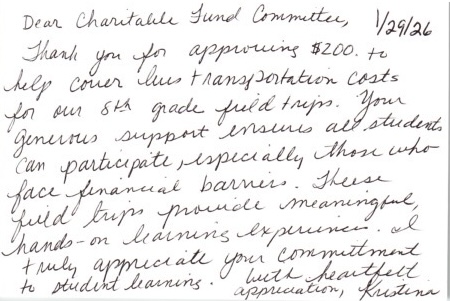 Dear Charitable Fund Committee,
1/29/26
Thank you for approving $200. to
help cover bus transportation costs
for our 8th grade field trips. Your
generous support ensures all students
can participate, especially those who
face financial barriers. These
field trips provide meaningful,
hands-on learning experiences. I
truly appreciate your committment
to student learning. With heartfelt
appreciation, Kristina